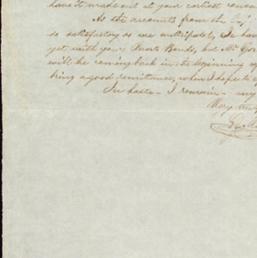 have it made out at your earliest
As the accounts from the
so satisfactory as we anticipated, I have
yet with your Bonds, but Mr
will be coming back in the beginning of
bring a good remittance, when I hope to
In haste - I remain - my
Very